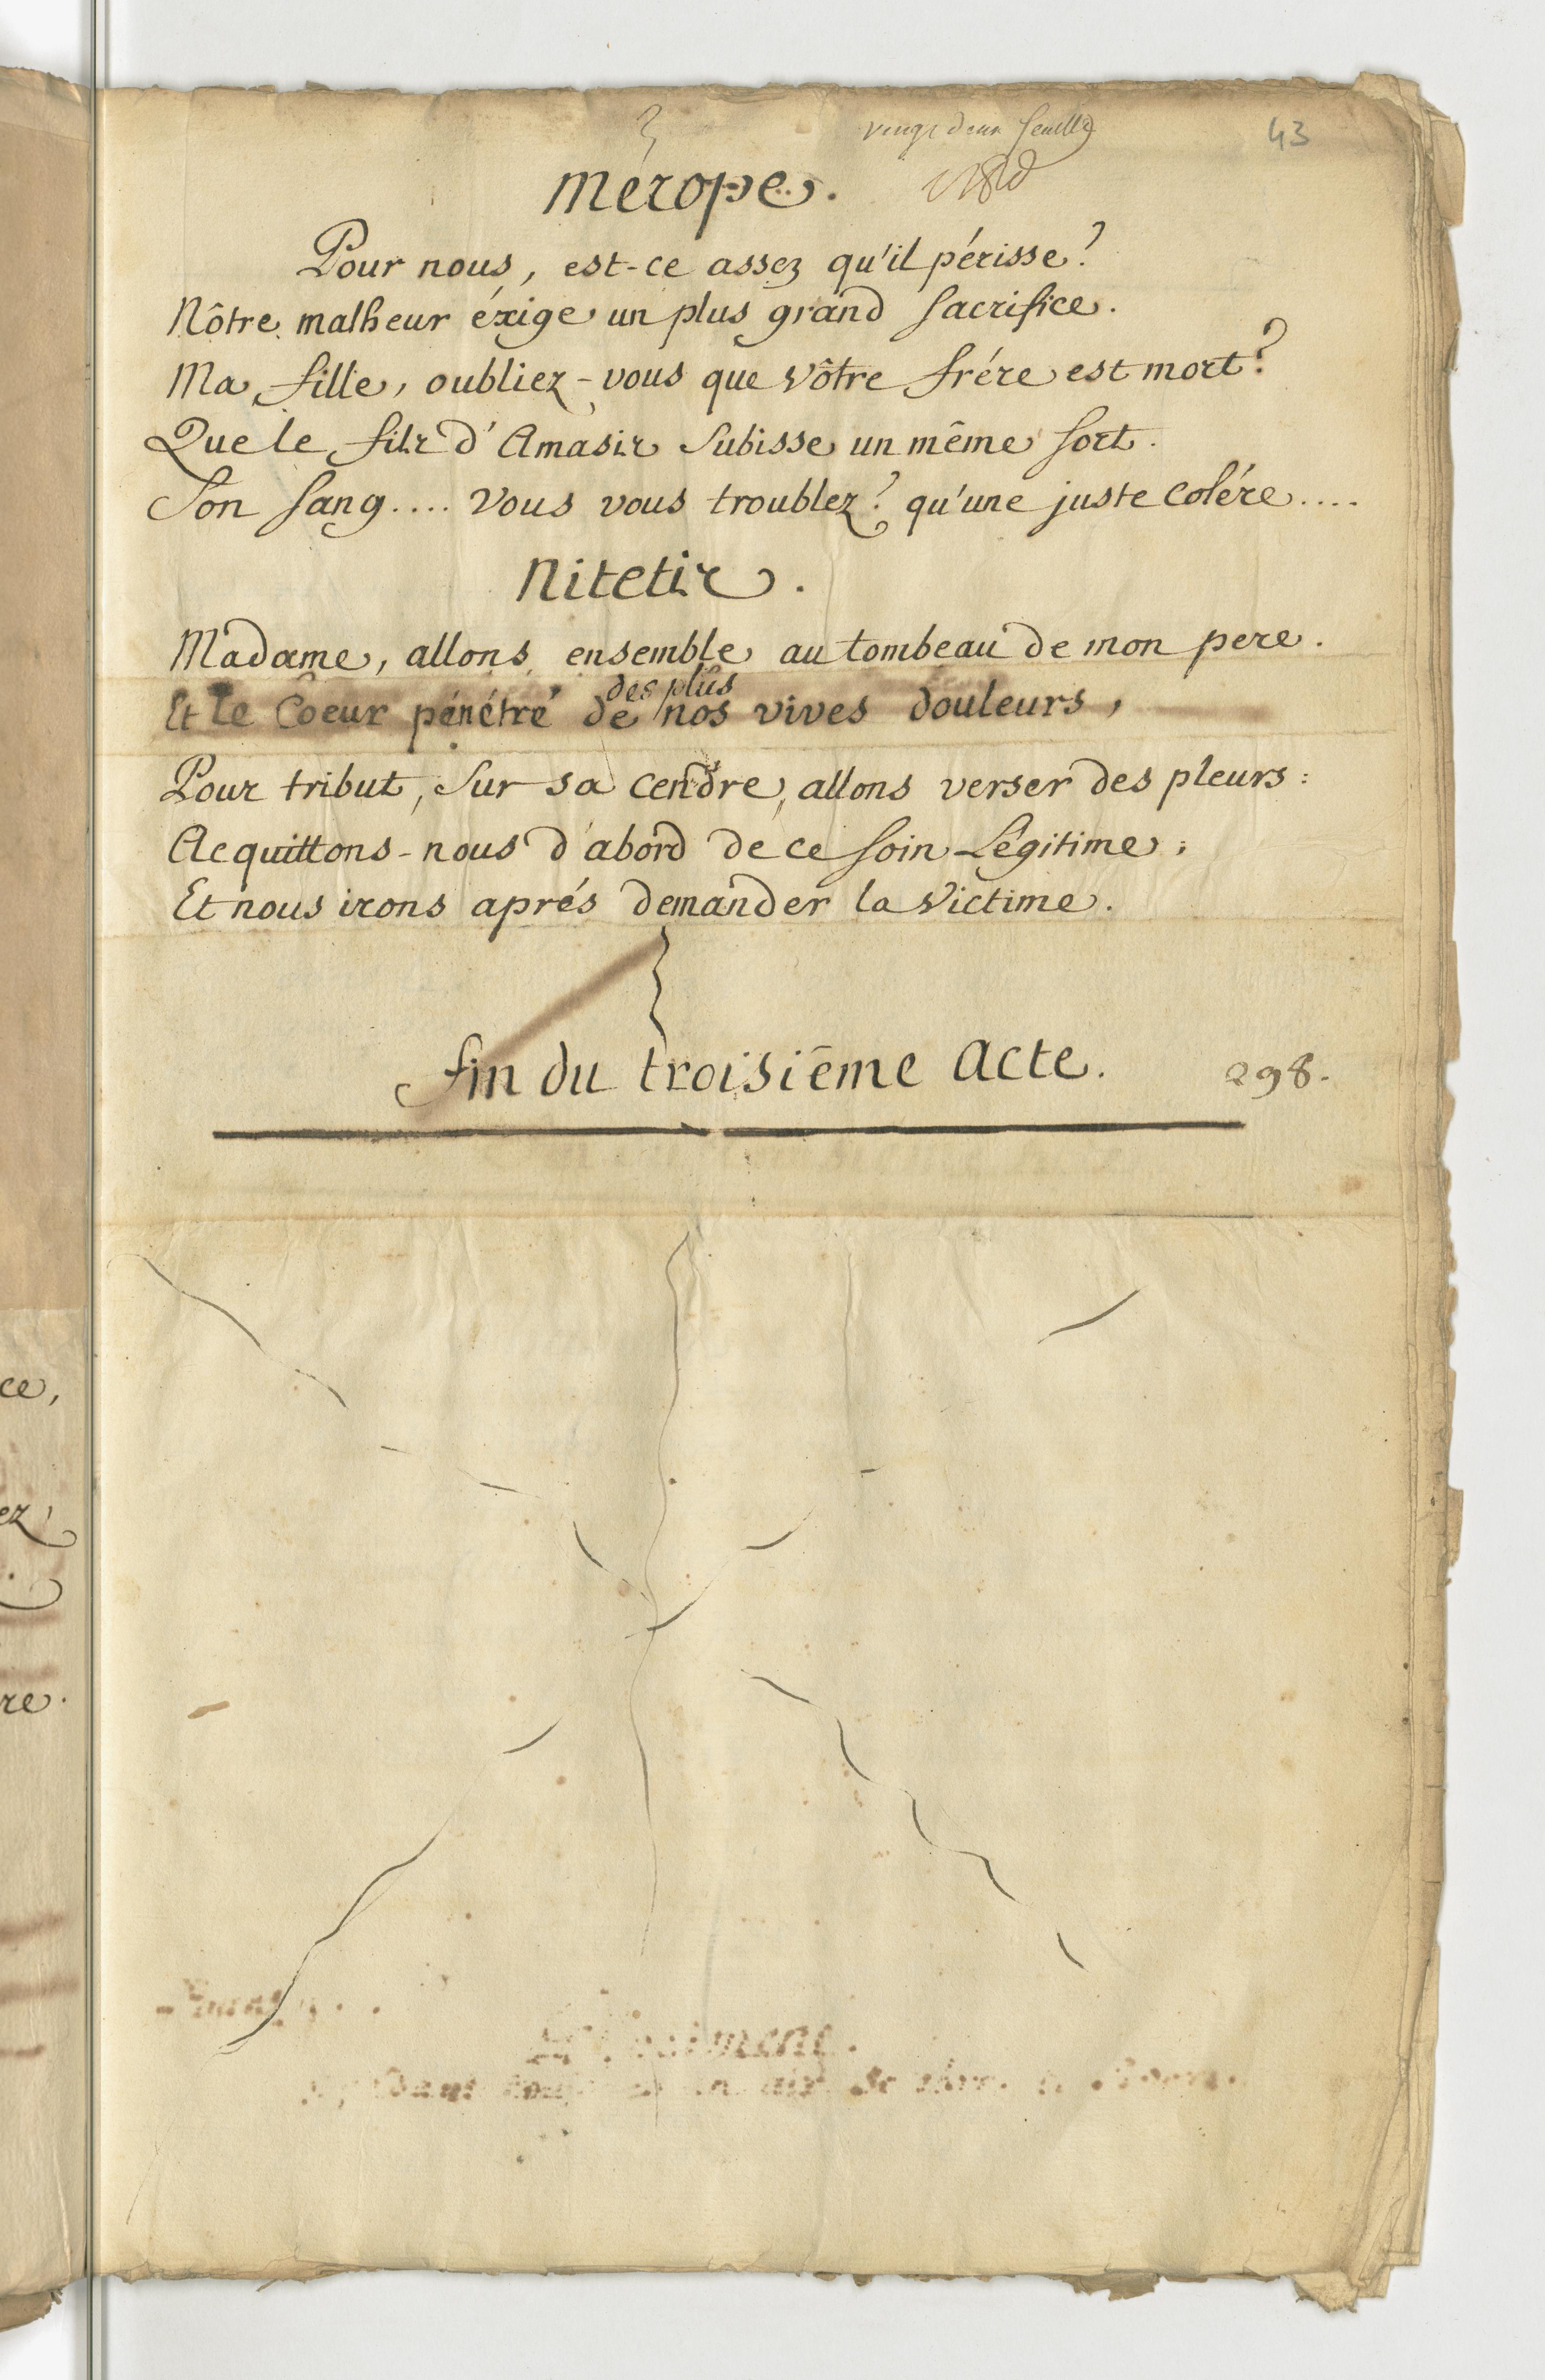 vingt deux feuille
43
Mérope.
Pour nous, est-ce assez qu'il périsse?
Nôtre malheur éxige un plus grand sacrifice.
Ma fille, oubliez-vous que vôtre frére est mort?
Que le fils d'Amasis subisse un même sort.
Son sang.... Vous vous troublez? qu'une juste colére....
Nitetis.
Madame, allons ensemble au tombeau de mon pere.
des plus
Et le Coeur pénétré de nos vives douleurs,
Pour tribut, sur sa cendre, allons verser des pleurs:
Acquittons-nous d'abord de ce soin Légitime;
Et nous irons aprés demander la Victime.
fin du troisiême Acte.
298.
ce,
ez,
re.